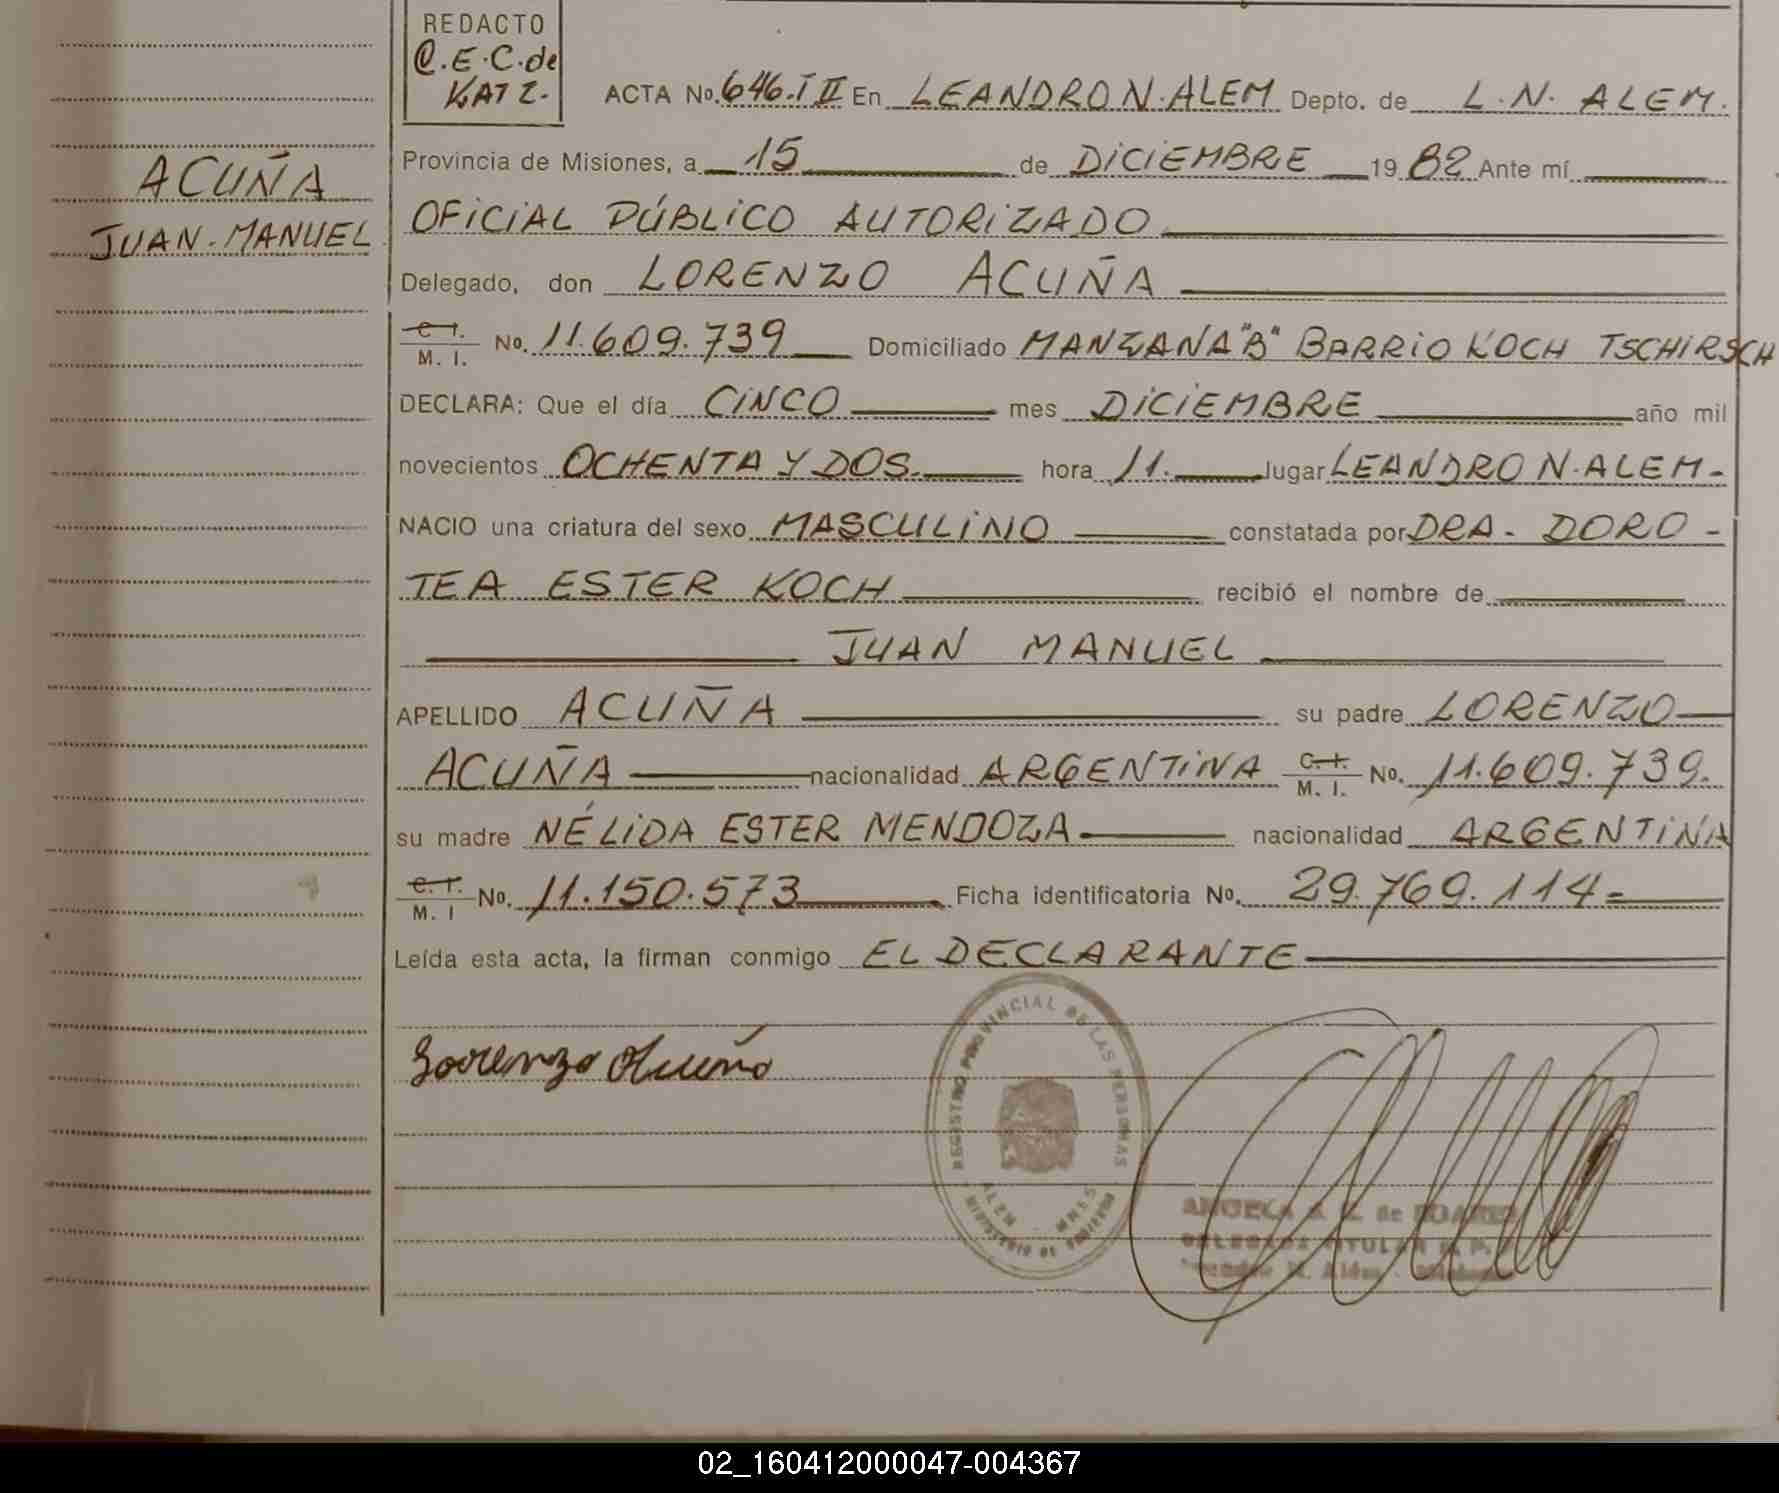 REDACTO
C.E.C. de
KATZ.-
ACTA No. 646.T II En LEANDRO N. ALEM Depto. de L. N. ALEM.
ACUÑA
JUAN-MANUEL
Provincia de Misiones, a 15 de DICIEMBRE 1982 Ante mí
OFICIAL PÚBLICO AUTORIZADO
Delegado, don LORENZO ACUÑA
C. I.
M. I. No. 11.609.739 Domiciliado MANZANA "B" BARRIO KOCH TSCHIRSCH
DECLARA: Que el día CINCO mes DICIEMBRE año mil
novecientos OCHENTA Y DOS. hora 11. lugar LEANDRO N. ALEM-
NACIO una criatura del sexo MASCULINO constatada por DRA- DORO-
TEA ESTER KOCH recibió el nombre de
JUAN MANUEL
APELLIDO ACUÑA su padre LORENZO
ACUÑA nacionalidad ARGENTINA C. I. M. I. No. 11.609.739.
su madre NÉLIDA ESTER MENDOZA nacionalidad ARGENTINA
C. I.
M. I No. 11.150.573 Ficha identificatoria No. 29.769.114=
Leída esta acta, la firman conmigo EL DECLARANTE
Lorenzo Acuña
REGISTRO PROVINCIAL DE LAS PERSONAS
ALEM - MNES
MINISTERIO DE GOBIERNO
ANGELA de SOAREZ
DELEGADA TITULAR R. P.
Leandro N. Além - Misiones
02_160412000047-004367